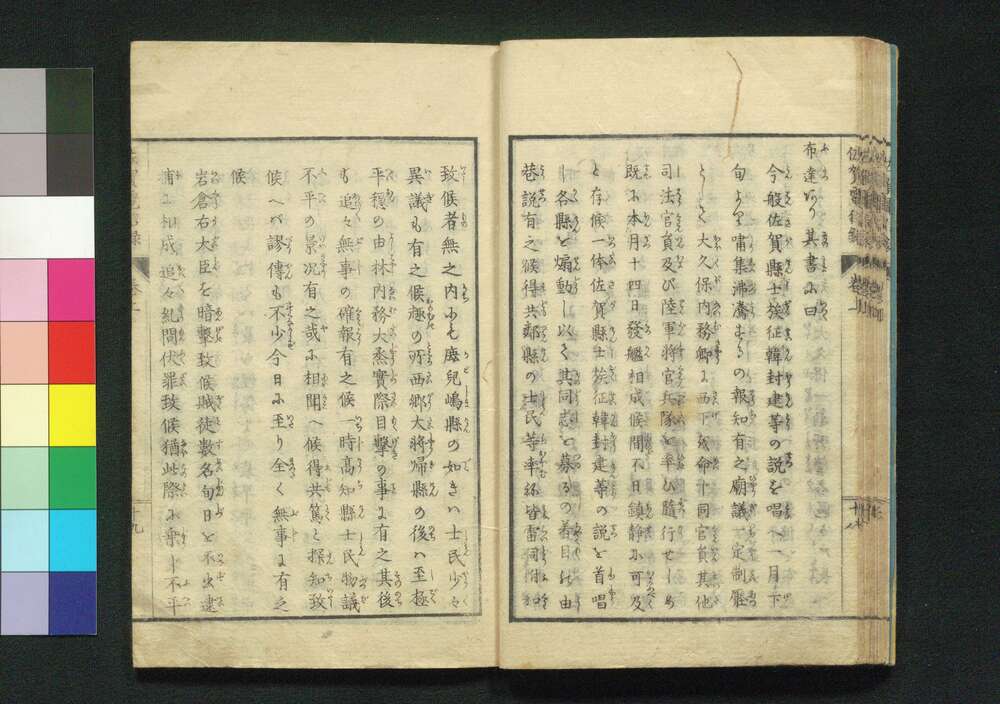 布達あり其書に曰
今般佐賀縣士族征韓封建等の説を唱へ一月下
旬より嘯集沸騰するの報知有之廟議一定制壓
として大久保内務卿に西下を命ト同官員其他
司法官員及び陸軍将官兵隊を率ひ隨行せしめ
既に本月十四日發艦相成候間不日鎮静に可及
と存候一体佐賀縣士族征韓封建等の説を首唱
し各縣を煽動し以て其同志を募るの着目の由
巷説有之候得共鄰縣の士民等率

致候者無之内にも鹿兒嶋縣の如きハ士民少々
異議も有之候趣の所西郷大将歸縣の後ハ至極
平穏の由林内務大丞實際目撃の事に有之其後
も追々無事の確報有之候一時髙知縣士民物議
不平の景况有之哉に相聞へ候得共篤と探知致
候へバ謬傳も不少今日に至り全く無事に有之
候
岩倉右大臣を暗撃致候賊徒数名旬日を不出逮
捕に相成追々糺問伏罪致候猶此際に乗し不平